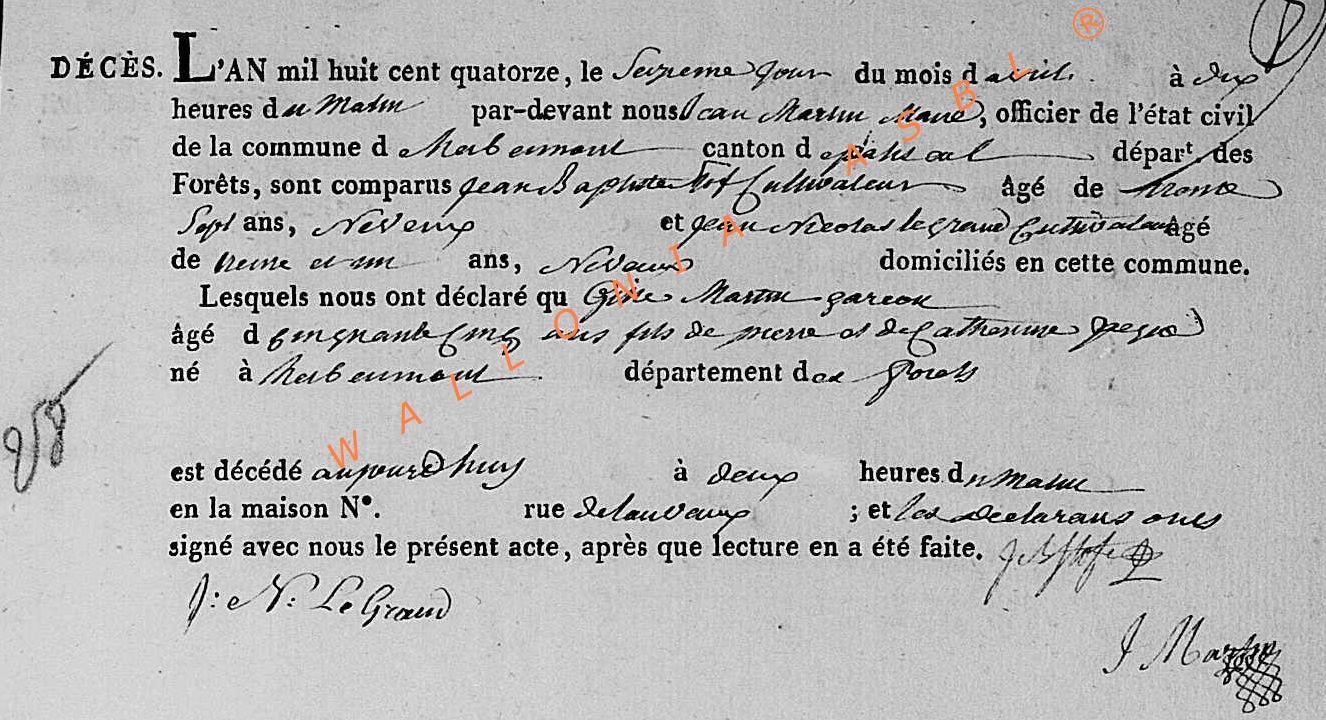 DÉCÈS. L'AN mil huit cent quatorze, le Seizieme jour du mois d avril. à deux
heures du Matin par-devant nous Jean Martin Maire, officier de l'état civil
de la commune d herbeumont canton d paliseul départ. des
Forêts, sont comparus jean Baptiste Cultivateur âgé de trente
Sept ans, Neveux et jean Nicolas le grand Cultivateur âgé
de trente et un ans, Neveux domiciliés en cette commune.
Lesquels nous ont déclaré qu Martin garcon
âgé d Cinquante Cinq ans fils de pierre et de Catherinne
né à herbeumont département des forets
est décédé aujourd'huy à deux heures du matin
en la maison N°. rue delauvaux ; et les declarans onts
signé avec nous le présent acte, après que lecture en a été faite.
J: N: Le Grand
J Martin
28
WALLONIA ASBL ®